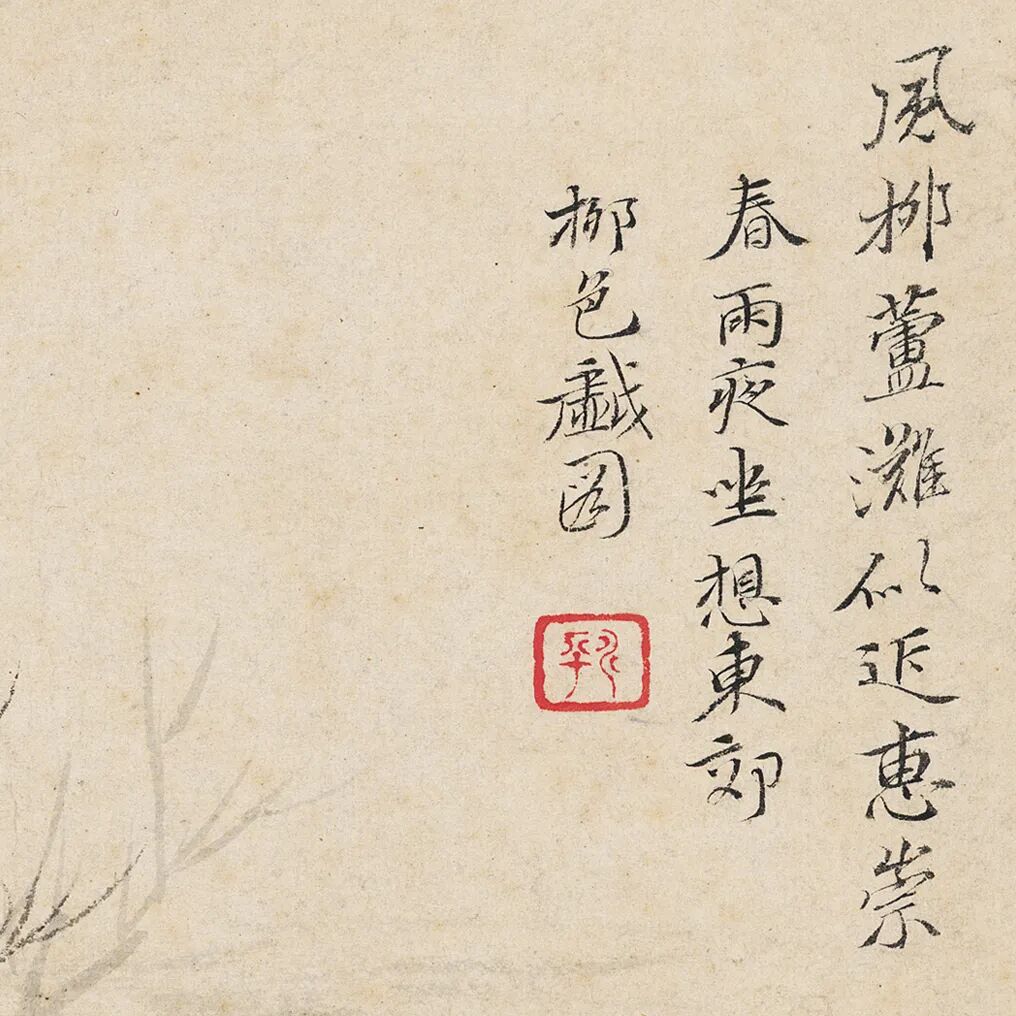 風柳蘆灘似近惠崇
春雨夜坐想東郊
柳色戲圖